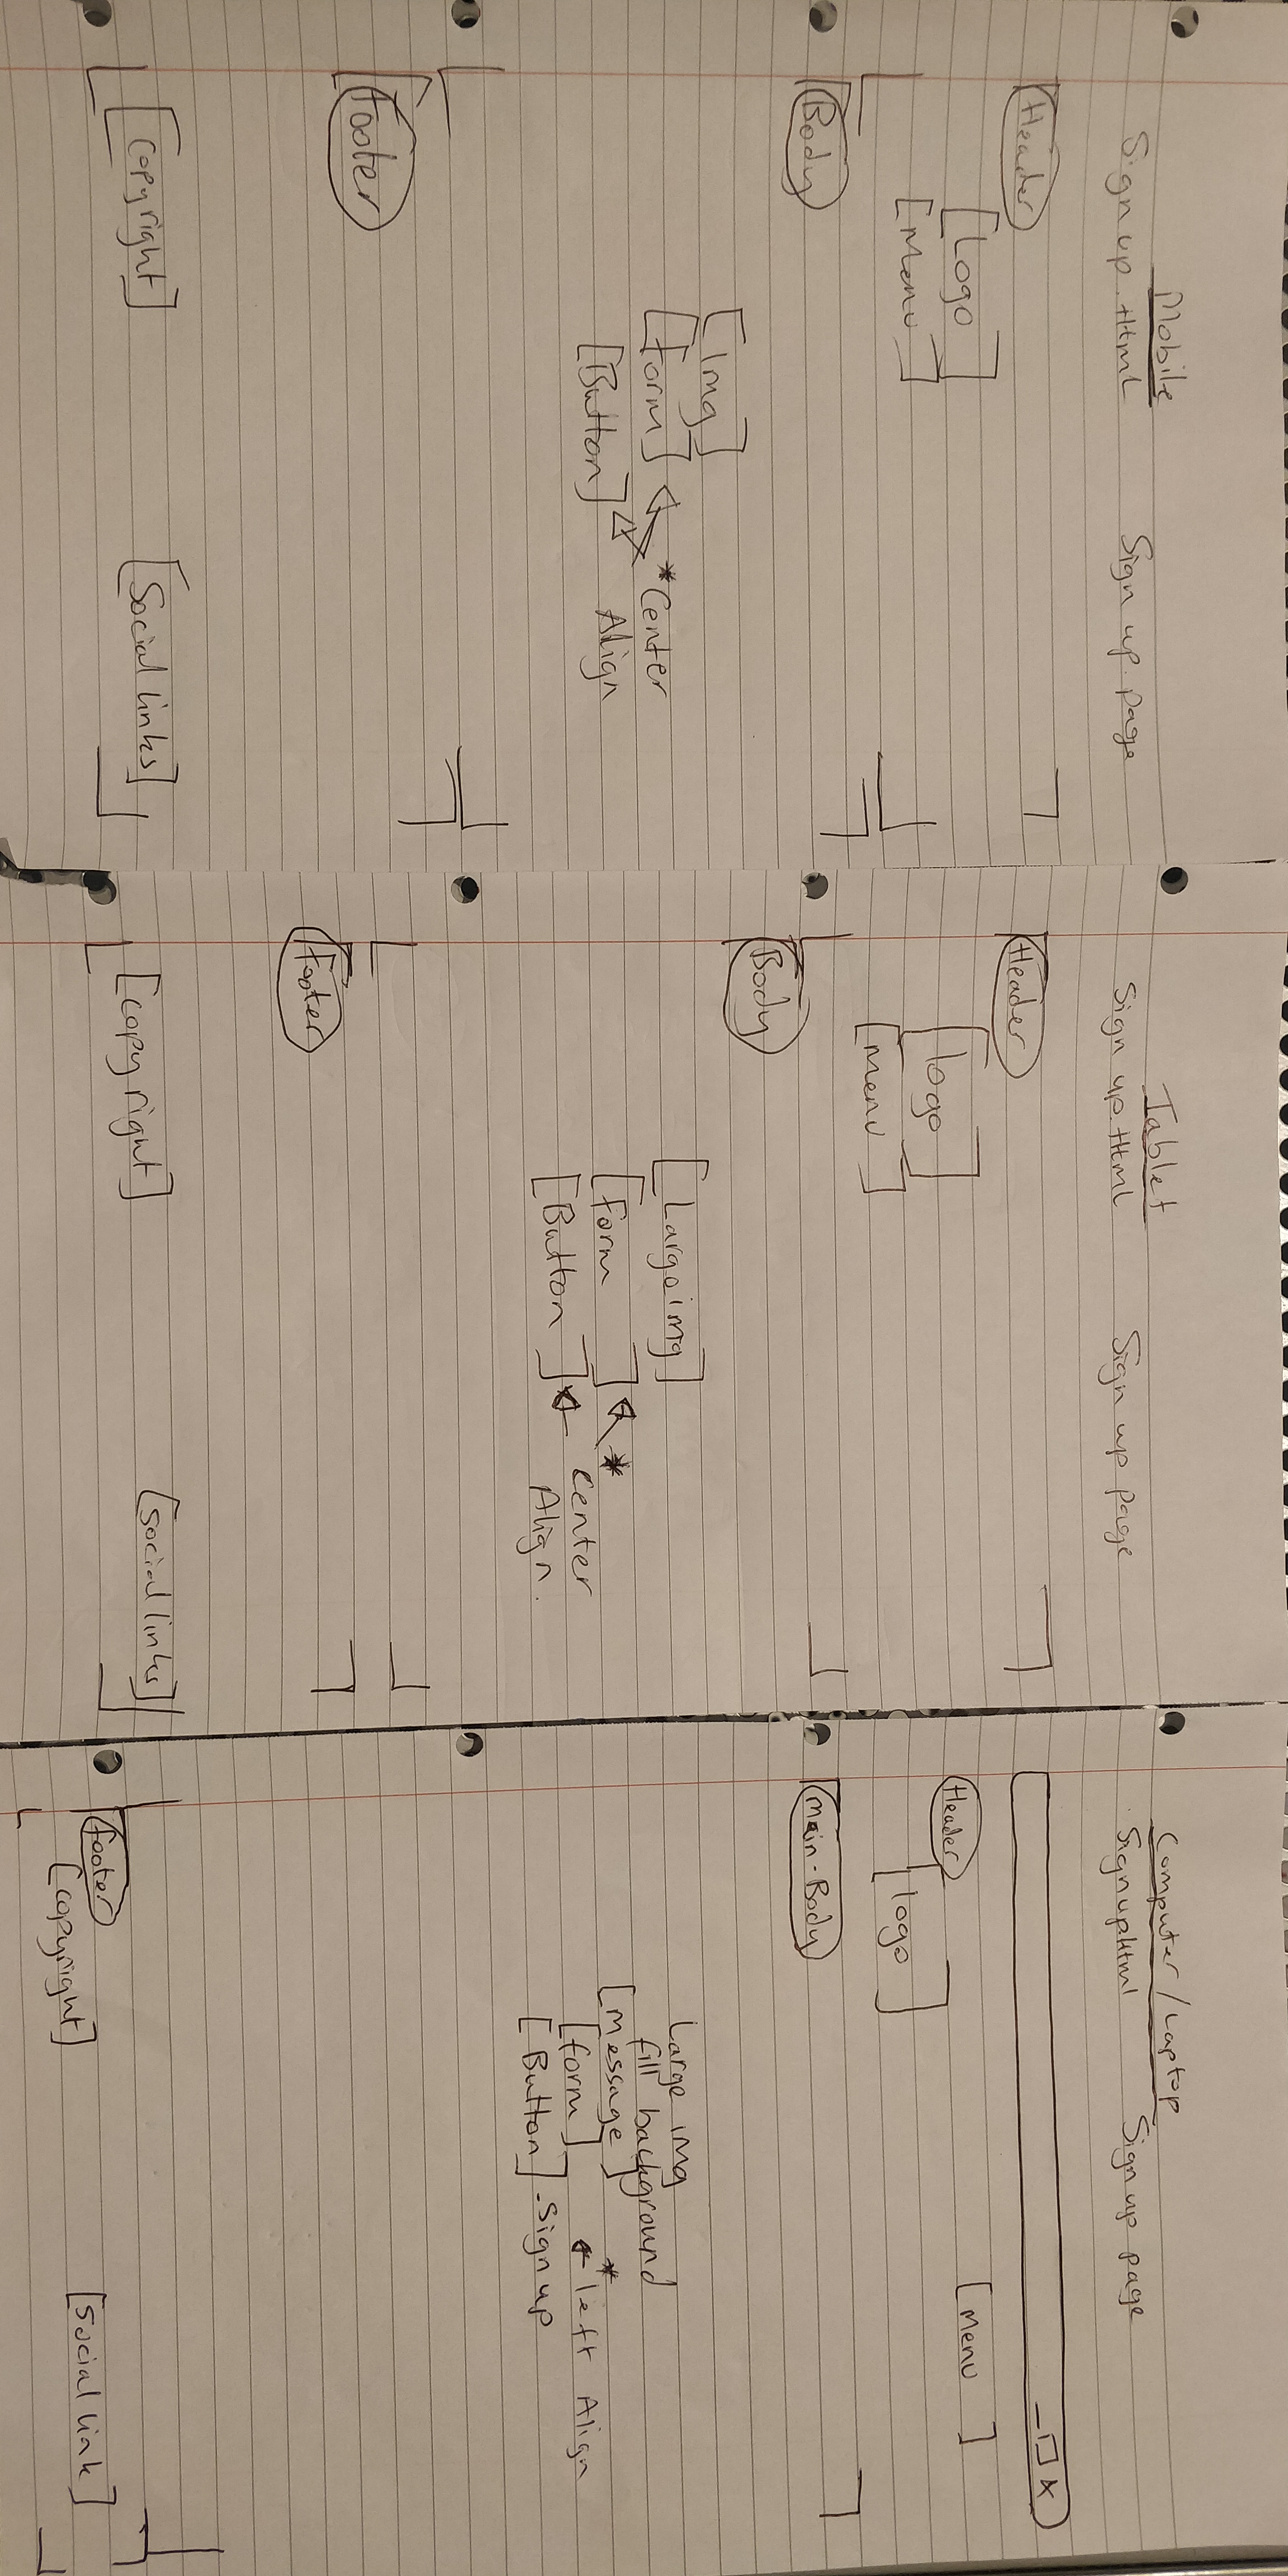 Mobile
Sign up.Html Sign up page
Header
[Logo]
[Menu]
Body
[Img]
[form]
*Center
Align
[Button]
Footer
[Copyright] [Social links]
Tablet
Sign up.Html Sign up page
Header
[logo]
[menu]
Body
[Large img]
[form] *
Center
[Button]
Align.
Footer
[copyright] [social links]
Computer / Laptop
Signup.Html Sign up page
_ □ x
[Menu]
Header
[logo]
Main-Body
Large img
fill background
[Message]
*
[form] left Align
[Button] - Sign up
footer
[copyright] [social link]